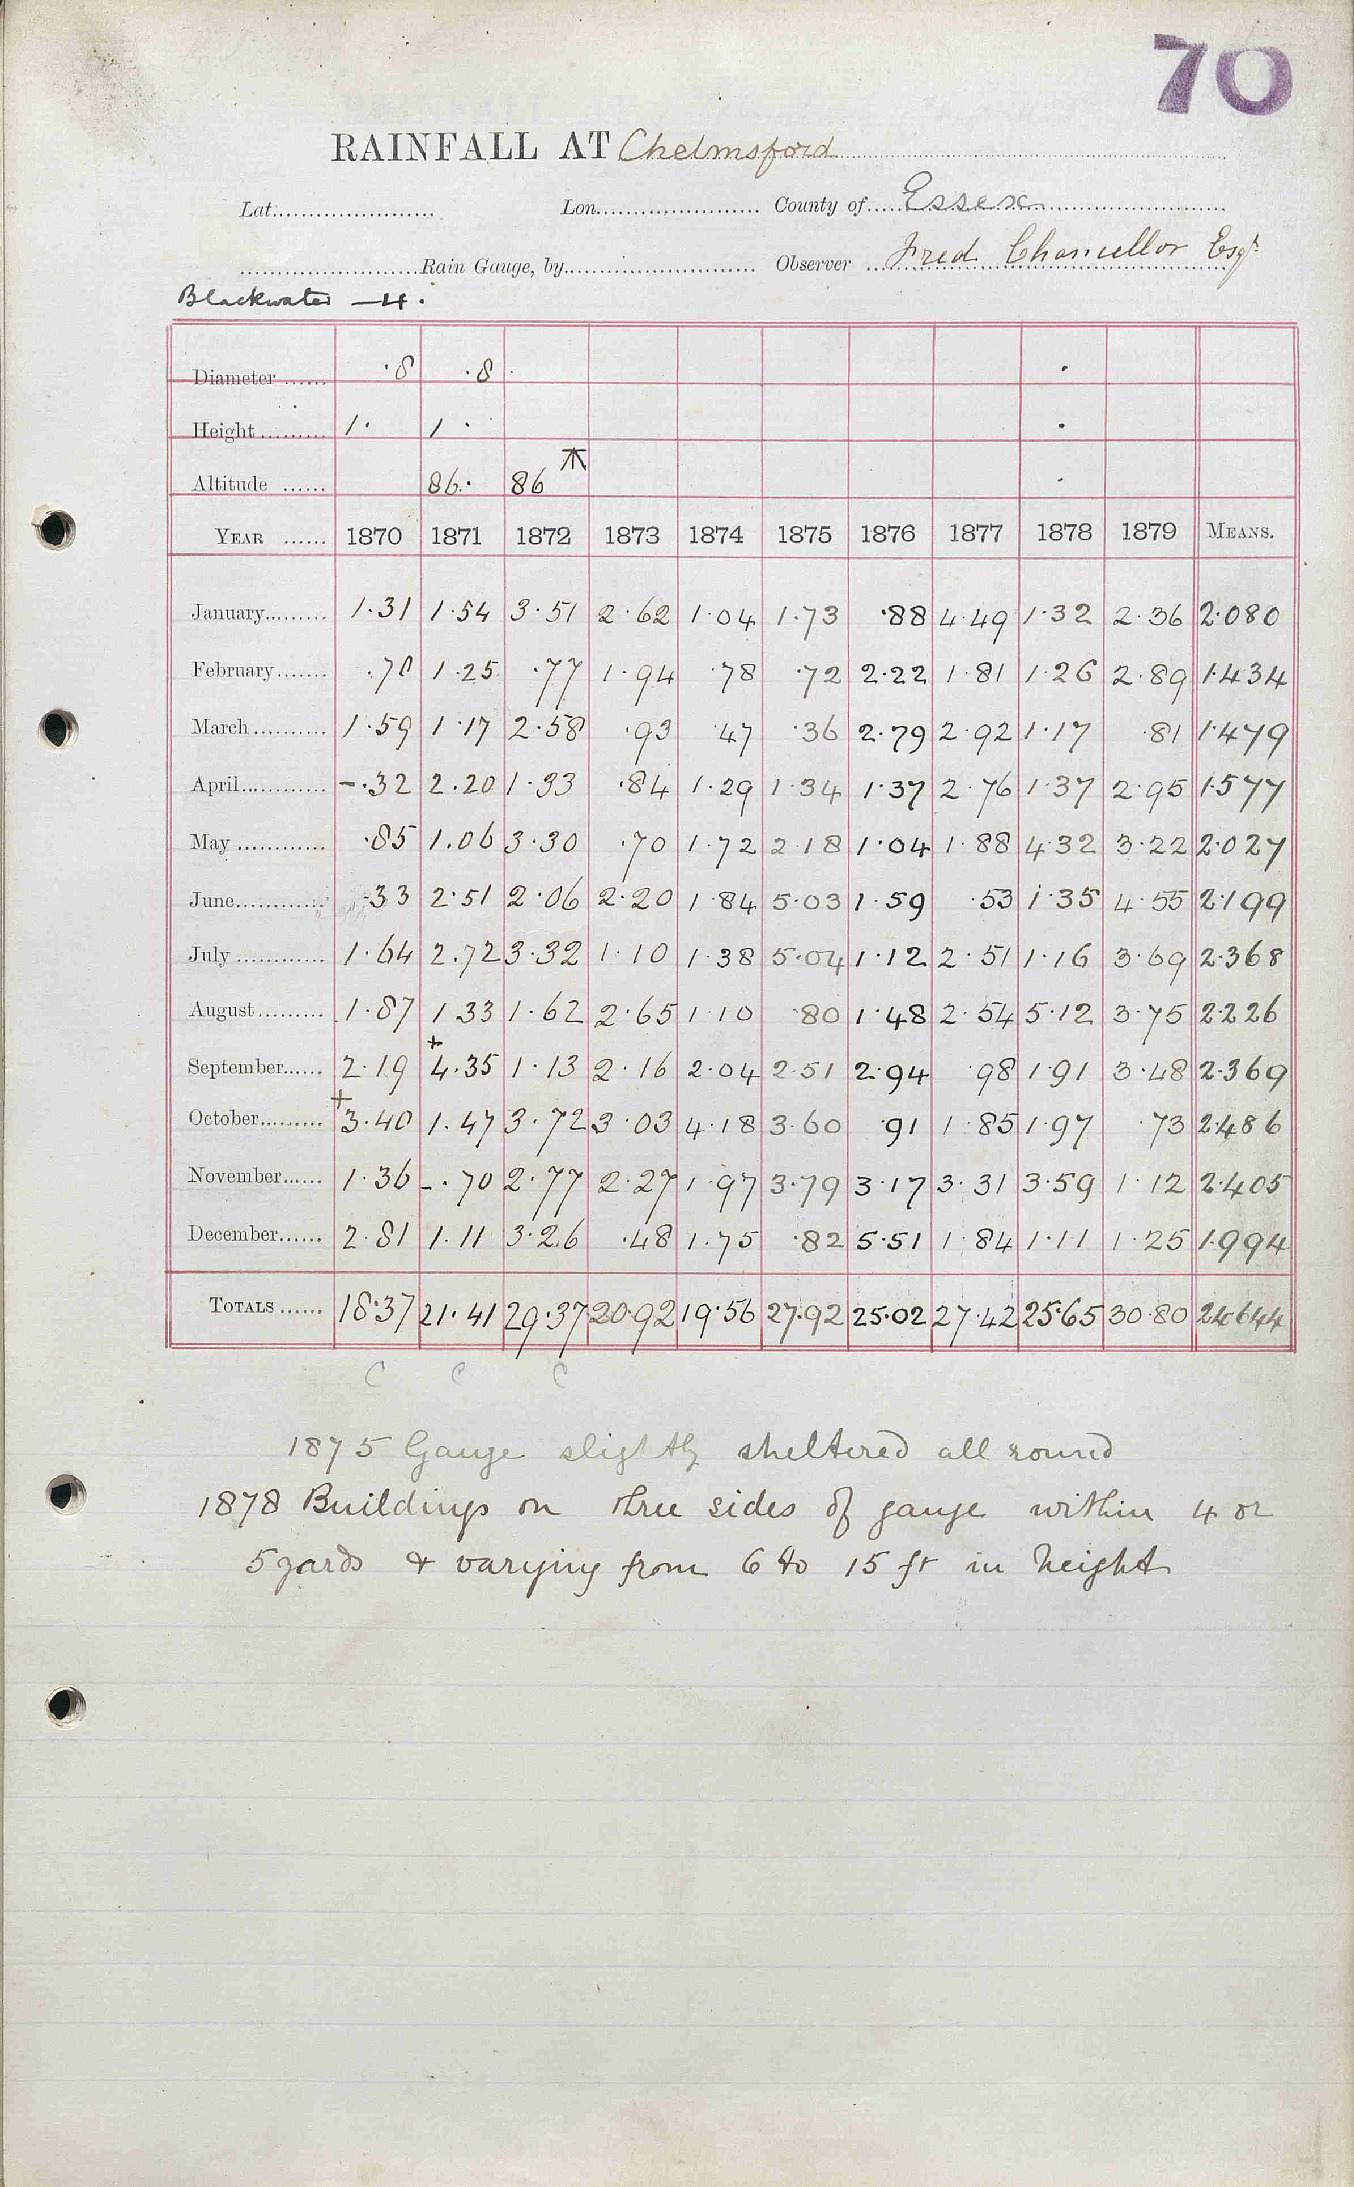 70
RAINFALL AT Chelmsford
Lat. Lon. County of Essex
Rain Gauge, by Observer Fred Chancellor Esqr
Blackwater — 4.
Diameter ·8 ·8
Height 1· 1·
Altitude 86· 86
YEAR 1870 1871 1872 1873 1874 1875 1876 1877 1878 1879 MEANS.
January 1·31 1·54 3·51 2·62 1·04 1·73 ·88 4·49 1·32 2·36 2·080
February ·70 1·25 ·77 1·94 ·78 ·72 2·22 1·81 1·26 2·89 1·434
March 1·59 1·17 2·58 ·93 ·47 ·36 2·79 2·92 1·17 ·81 1·479
April –·32 2·20 1·33 ·84 1·29 1·34 1·37 2·76 1·37 2·95 1·577
May ·85 1·06 3·30 ·70 1·72 2·18 1·04 1·88 4·32 3·22 2·027
June ·33 2·51 2·06 2·20 1·84 5·03 1·59 ·53 1·35 4·55 2·199
July 1·64 2·72 3·32 1·10 1·38 5·04 1·12 2·51 1·16 3·69 2·368
August 1·87 1·33 1·62 2·65 1·10 ·80 1·48 2·54 5·12 3·75 2·226
September 2·19 +4·35 1·13 2·16 2·04 2·51 2·94 ·98 1·91 3·48 2·369
October +3·40 1·47 3·72 3·03 4·18 3·60 ·91 1·85 1·97 ·73 2·486
November 1·36 –·70 2·77 2·27 1·97 3·79 3·17 3·31 3·59 1·12 2·405
December 2·81 1·11 3·26 ·48 1·75 ·82 5·51 1·84 1·11 1·25 1·994
TOTALS 18·37 21·41 29·37 20·92 19·56 27·92 25·02 27·42 25·65 30·80 24·644
C C C
1875 Gauge slightly sheltered all round
1878 Buildings on three sides of gauge within 4 or
5 yards & varying from 6 to 15 ft in height